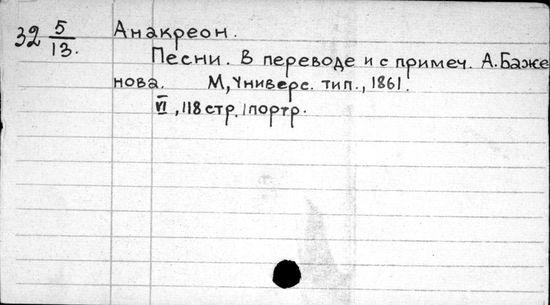 32 5/13. Анакреон.
Песни. В переводе и с примеч. А. Баже
нова. М, Универс. тип., 1861.
VI, 118 стр. 1 портр.